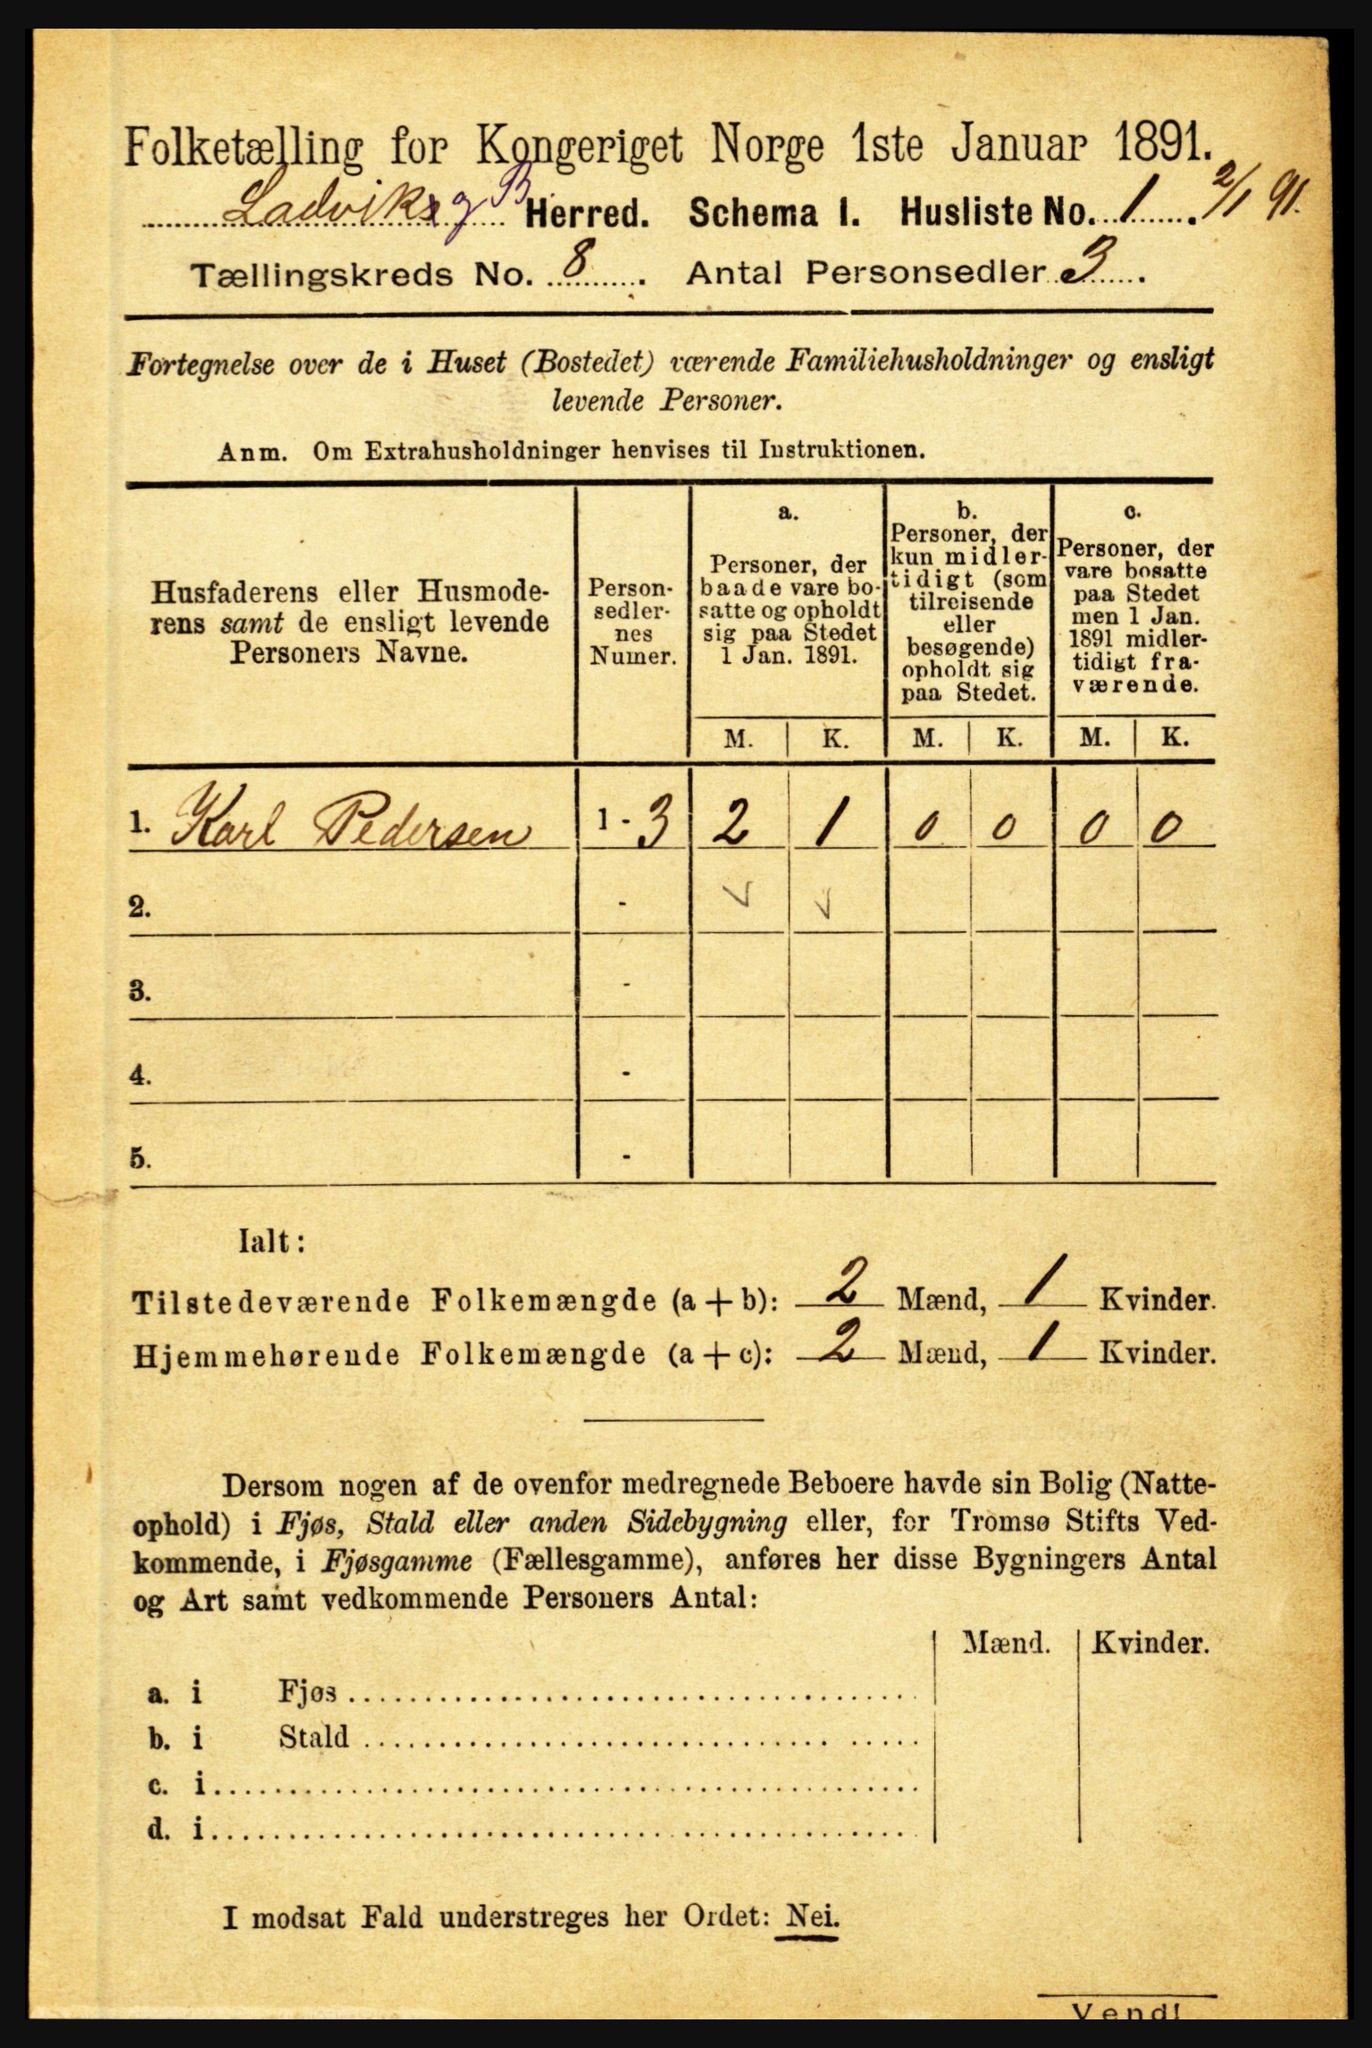 Folketælling for Kongeriget Norge 1ste Januar 1891.
Ladviks og B Herred. Schema I. Husliste No. 1. 2/1 91.
Tællingskreds No. 8. Antal Personsedler 3.
Fortegnelse over de i Huset (Bostedet) værende Familiehusholdninger og ensligt
levende Personer.
Anm. Om Extrahusholdninger henvises til Instruktionen.
Husfaderens eller Husmode-
rens samt de ensligt levende
Personers Navne.
Person-
sedler-
nes
Numer.
a.
Personer, der
baade vare bo-
satte og opholdt
sig paa Stedet
1 Jan. 1891.
b.
Personer, der
kun midler-
tidigt (som
tilreisende
eller
besøgende)
opholdt sig
paa Stedet.
c.
Personer, der
vare bosatte
paa Stedet
men 1 Jan.
1891 midler-
tidigt fra-
værende.
M. K. M. K. M. K.
1. Karl Pedersen 1 - 3 2 1 0 0 0 0
2. -
3. -
4. -
5. -
Ialt:
Tilstedeværende Folkemængde (a + b): 2 Mænd, 1 Kvinder.
Hjemmehørende Folkemængde (a + c): 2 Mænd, 1 Kvinder.
Dersom nogen af de ovenfor medregnede Beboere havde sin Bolig (Natte-
ophold) i Fjøs, Stald eller anden Sidebygning eller, for Tromsø Stifts Ved-
kommende, i Fjøsgamme (Fællesgamme), anføres her disse Bygningers Antal
og Art samt vedkommende Personers Antal:
Mænd. Kvinder.
a. i Fjøs
b. i Stald
c. i
d. i
I modsat Fald understreges her Ordet: Nei.
Vend!